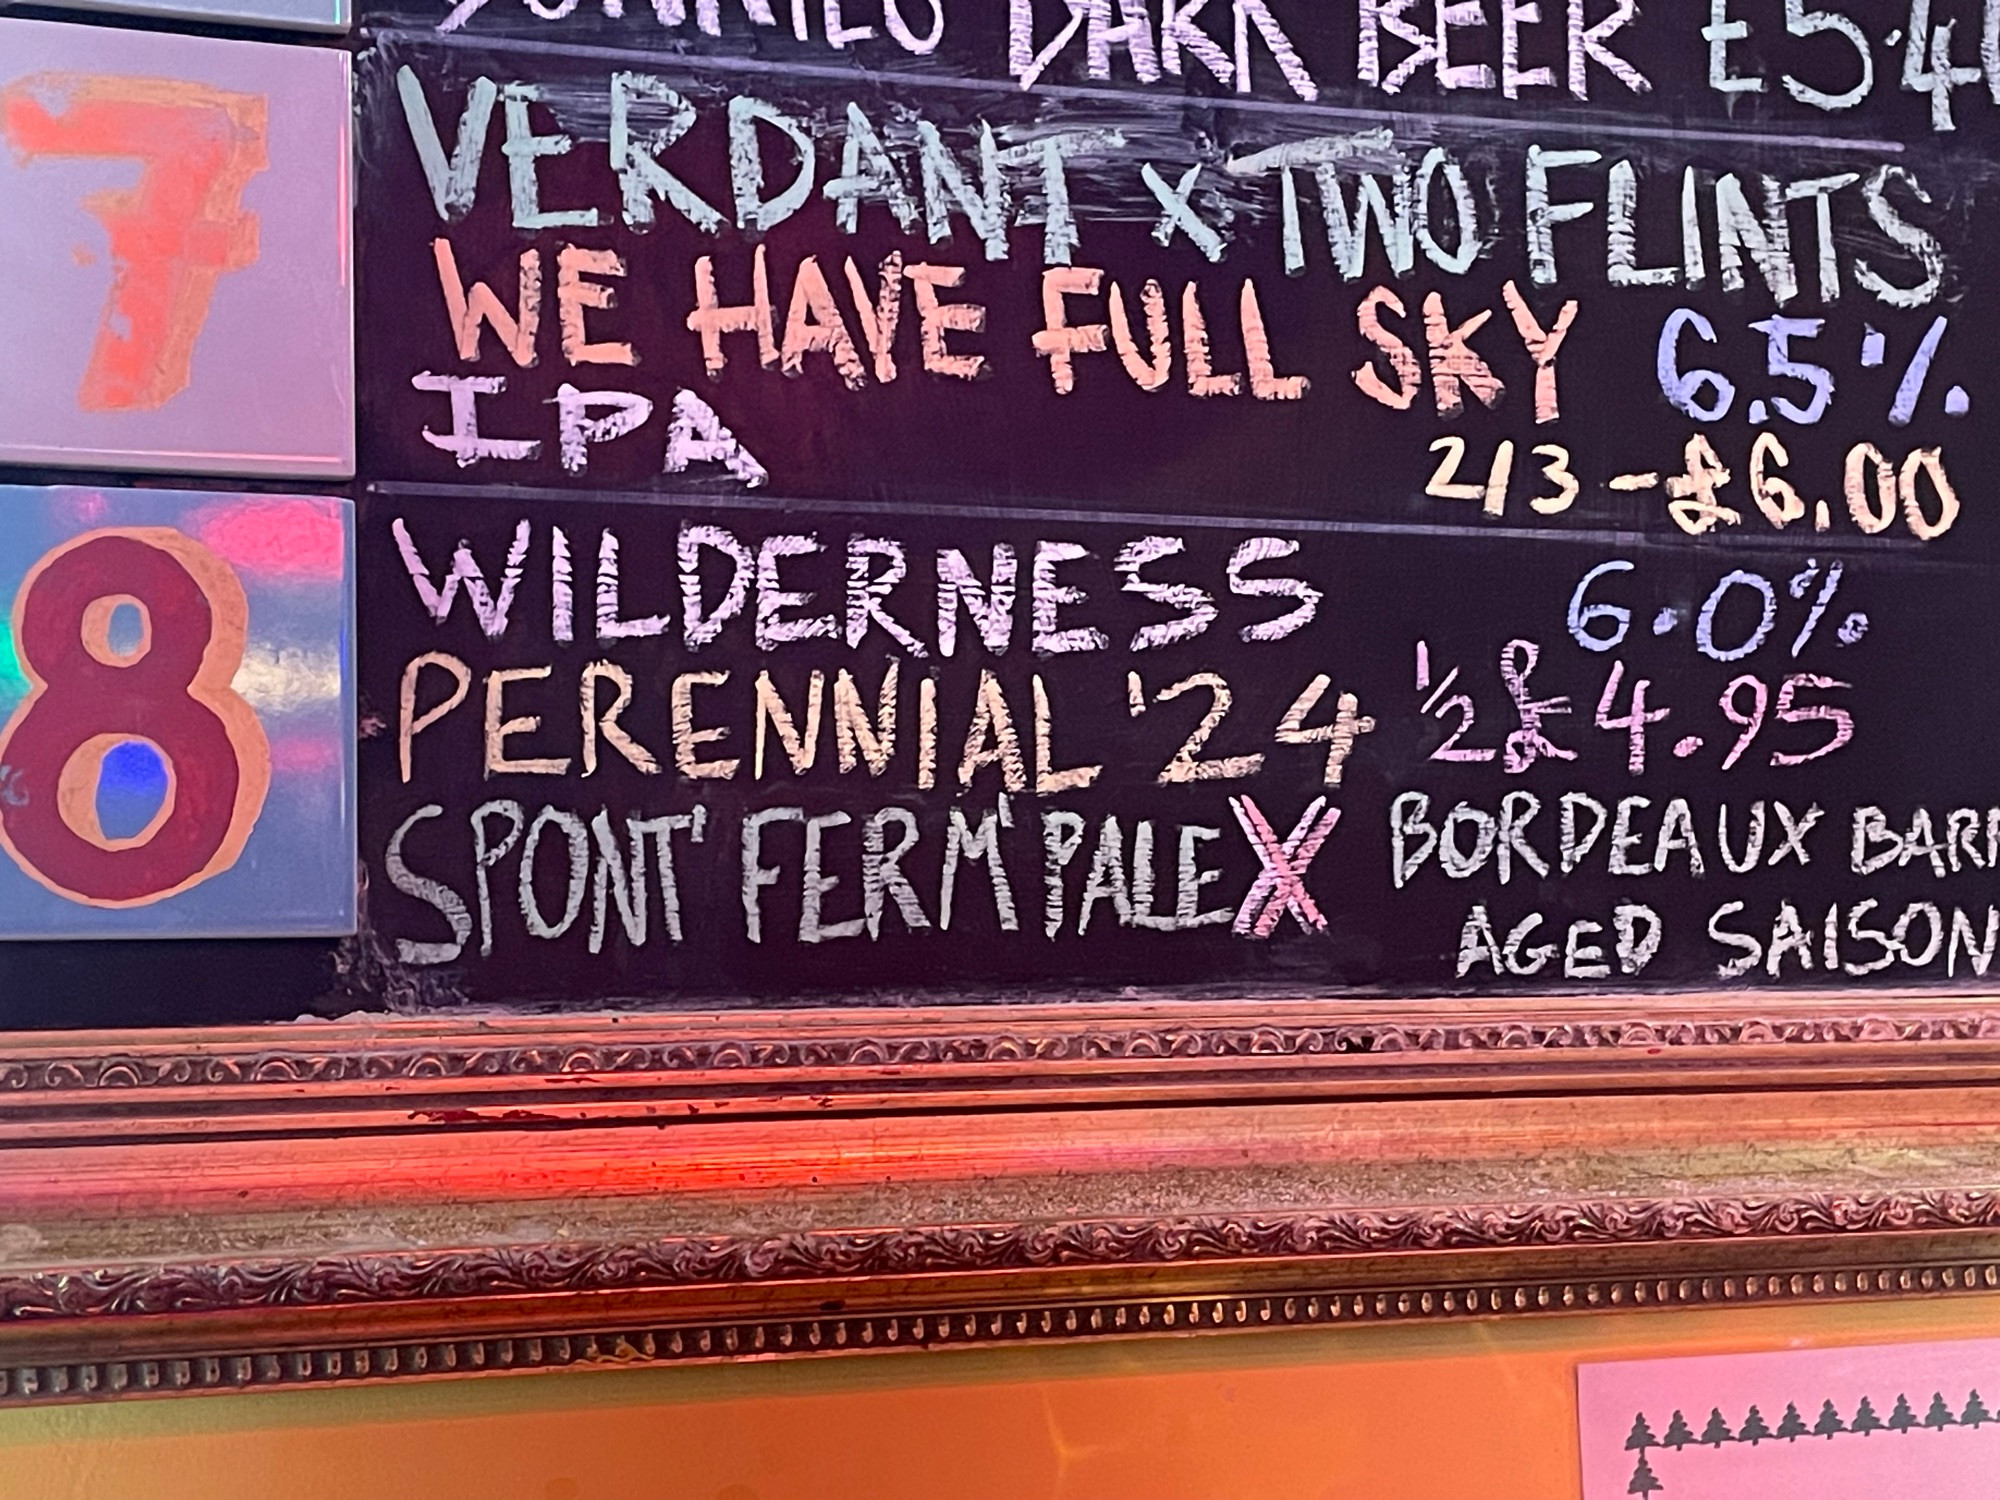 DARK BEER £5.40
7
VERDANT x TWO FLINTS
WE HAVE FULL SKY 6.5%
IPA
2/3 - £6.00
8
WILDERNESS 6.0%
PERENNIAL '24 1/2 £4.95
SPONT' FERM' PALE X BORDEAUX
AGED SAISON